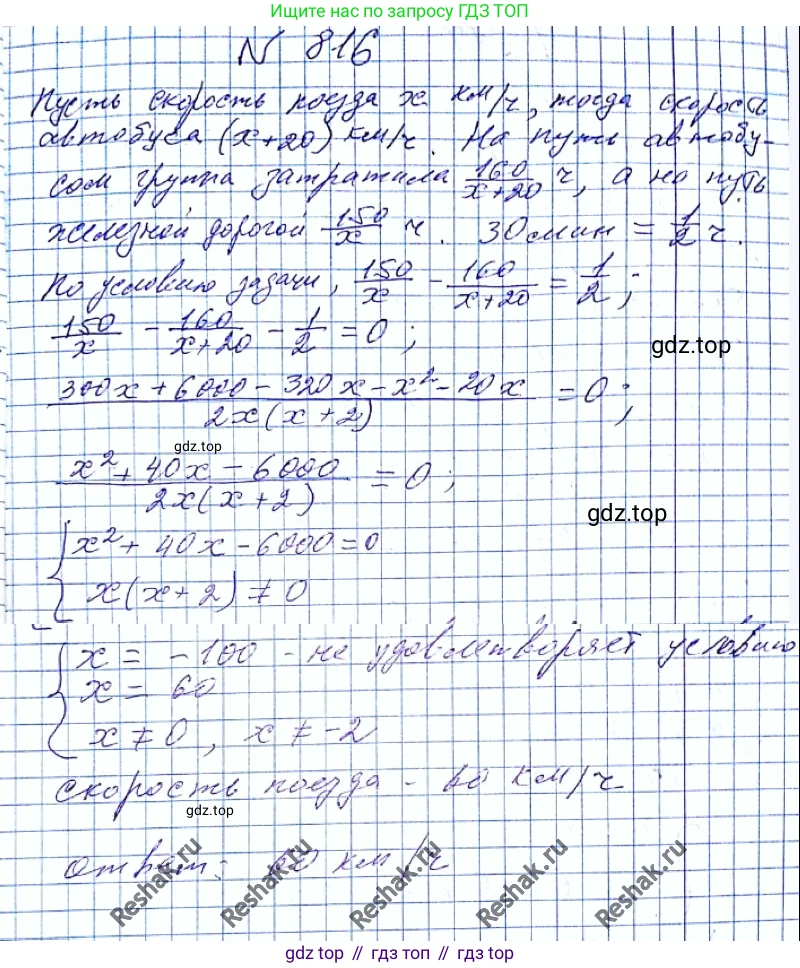 Ищите нас по запросу ГДЗ ТОП
N 816
Пусть скорость поезда x км/ч, тогда скорость
автобуса (x+20) км/ч. На путь автобу-
сом группа затратила 160/(x+20) ч, а на путь
железной дорогой 150/x ч. 30 мин = 1/2 ч.
По условию задачи, 150/x - 160/(x+20) = 1/2;
150/x - 160/(x+20) - 1/2 = 0;
gdz.top
(300x + 6000 - 320x - x² - 20x)/(2x(x+2)) = 0;
gdz.top
(x² + 40x - 6000)/(2x(x+2)) = 0;
gdz.top
{x² + 40x - 6000 = 0
x(x+2) ≠ 0
{x = -100 - не удовлетворяет условию
x = 60
x ≠ 0, x ≠ -2
скорость поезда - 60 км/ч
gdz.top
ответ: 60 км/ч
Reshak.ru Reshak.ru Reshak.ru Reshak.ru Reshak.ru
gdz.top // gdz.top // gdz.top